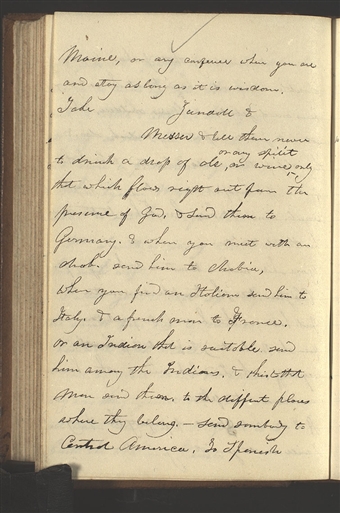 Maine, or any conference when you are
and stay as long as it is wisdom.
Take Jundoll &
Messer & tell them never
or any spirit
to drink a drop of ale, or wine, only
that which flows right out from the
presence of God, & send them to
Germany. & when you meet with an
Arab. send him to Arabia,
when you find an Italian send him to
Italy. & a french man to France.
or an Indian that is suitable send
him among the Indians. & this & that
man send them. to the different places
where they belong. — send somebody to
Central America, to Spanish